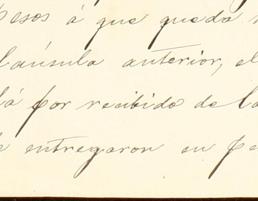 pesos á que queda
cláusula anterior, el
dá por recibido de la
entregaron en pe